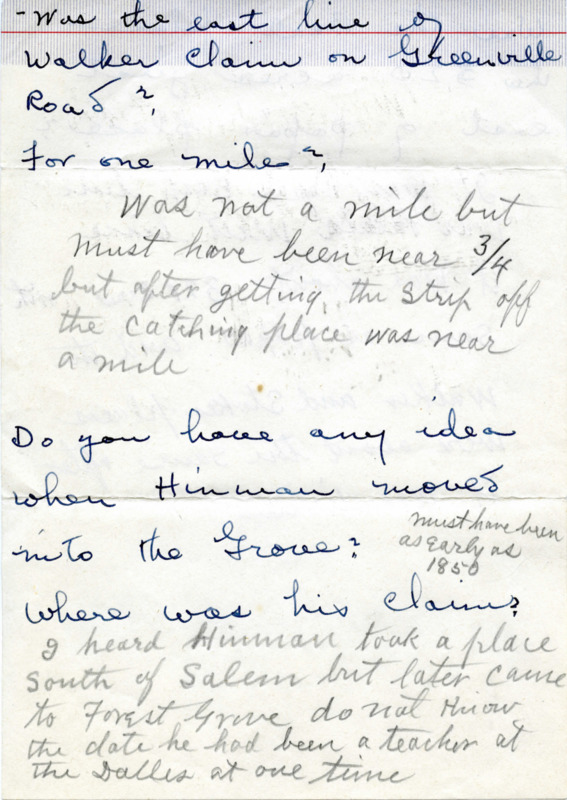 - Was the east line of
Walker Claim on Greenville
Road?,
For one mile?,
Was not a mile but
must have been near 3/4
but after getting the strip off
the catching place was near
a mile
Do you have any idea
when Hinman moved
into the Grove?
must have been
as early as
1850
Where was his claim?
I heard Hinman took a place
South of Salem but later came
to Forest Grove do not know
the date he had been a teacher at
the Dalles at one time